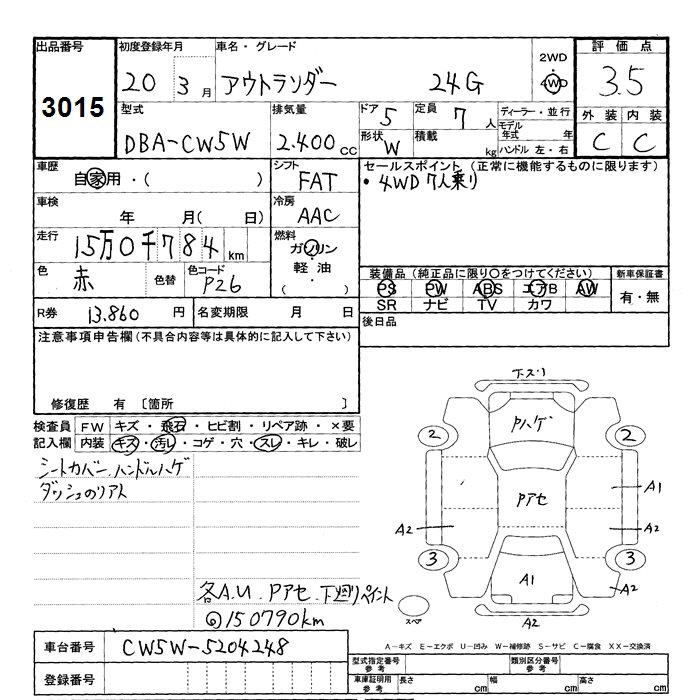 出品番号
3015
初度登録年月
20 3月
車名・グレード
アウトランダー 24G
2WD
4WD
評価点
3.5
型式
DBA-CW5W
排気量
2.400 cc
ドア 5
定員 7 人
形状 W
積載 kg
ディーラー・並行
モデル年式 年
ハンドル 左・右
外装 内装
C C
車歴
自家用・( )
シフト
FAT
セールスポイント (正常に機能するものに限ります)
・4WD 7人乗り
車検
年 月( 日)
冷房
AAC
走行
15万0千784 km
燃料
ガソリン
軽油
( ・ )
色
赤
色替
色コード
P26
装備品 (純正品に限り○をつけてください)
PS PW ABS エアB AW
SR ナビ TV カワ
新車保証書
有・無
R券 13.860 円
名変期限 月 日
後日品
注意事項申告欄 (不具合内容等は具体的に記入して下さい)
修復歴 有 〔箇所 〕
検査員記入欄
FW キズ・飛石・ヒビ割・リペア跡・×要
内装 キズ・汚レ・コゲ・穴・スレ・キレ・破レ
シートカバー.ハンドルハゲ
ダッシュのリアト
各A.U. Pアセ.下廻りペイント
@150790km
下スリ
Pハゲ
2 2
Pアセ
A1
A2 A2
3 3
A1
A2
スペア
A2
A-キズ E-エクボ U-凹み W-補修跡 S-サビ C-腐食 XX-交換済
車台番号 CW5W-5204248
登録番号
型式指定番号 参考
類別区分番号 参考
車庫証明用 参考
長さ cm 幅 cm 高さ cm